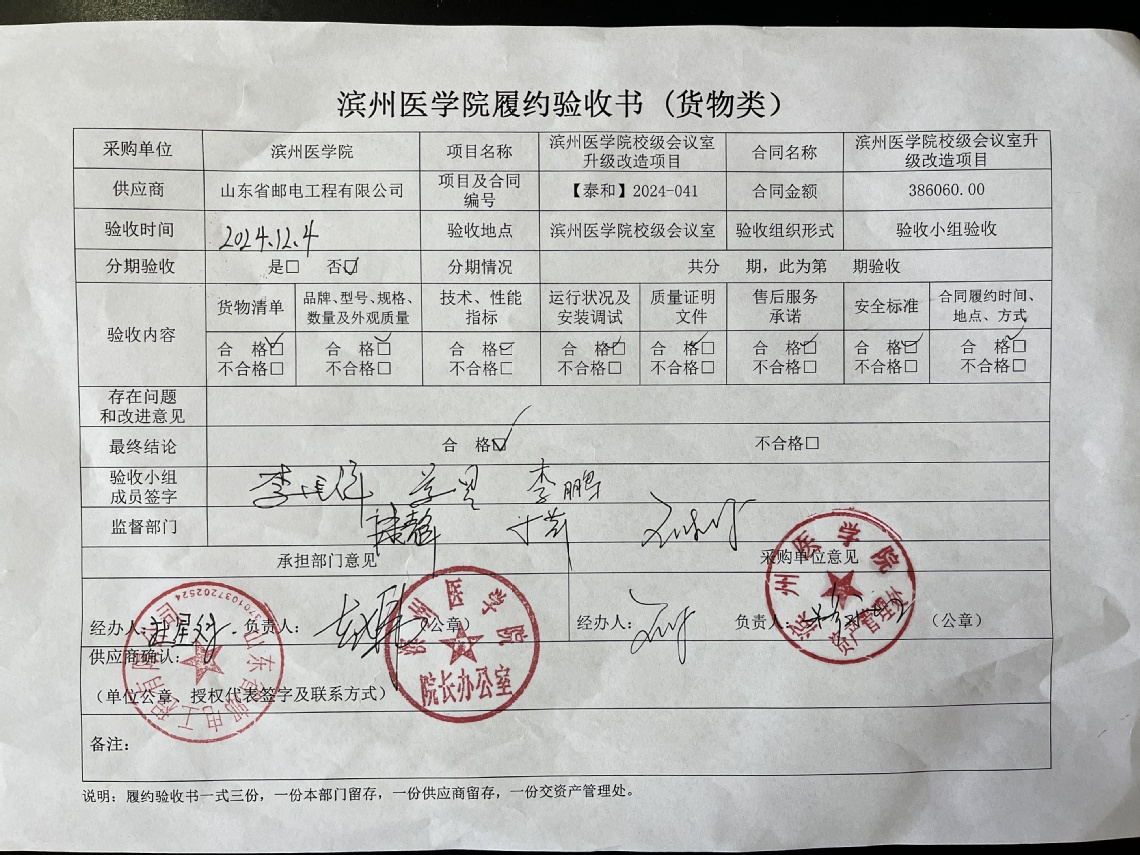 滨州医学院履约验收书（货物类）
采购单位 滨州医学院 项目名称 滨州医学院校级会议室升级改造项目 合同名称 滨州医学院校级会议室升级改造项目
供应商 山东省邮电工程有限公司 项目及合同编号 【泰和】2024-041 合同金额 386060.00
验收时间 2024.12.4 验收地点 滨州医学院校级会议室 验收组织形式 验收小组验收
分期验收 是□ 否☑ 分期情况 共分 期，此为第 期验收
验收内容 货物清单 品牌、型号、规格、数量及外观质量 技术、性能指标 运行状况及安装调试 质量证明文件 售后服务承诺 安全标准 合同履约时间、地点、方式
合 格☑ 合 格☑ 合 格☑ 合 格☑ 合 格☑ 合 格☑ 合 格☑ 合 格☑
不合格□ 不合格□ 不合格□ 不合格□ 不合格□ 不合格□ 不合格□ 不合格□
存在问题和改进意见
最终结论 合 格☑ 不合格□
验收小组成员签字 李鹏
监督部门
承担部门意见 采购单位意见
经办人： 负责人： （公章） 经办人： 负责人： （公章）
供应商确认：
（单位公章、授权代表签字及联系方式）
备注：
说明：履约验收书一式三份，一份本部门留存，一份供应商留存，一份交资产管理处。
山东省邮电工程有限公司
3701037202524
滨州医学院
院长办公室
滨州医学院
资产管理处